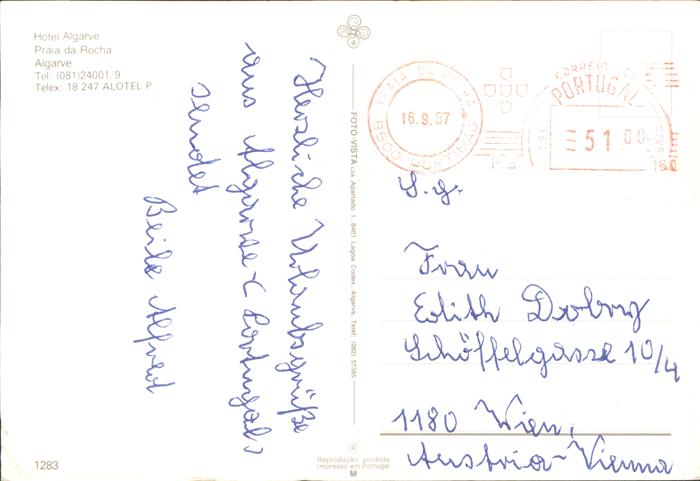 Hotel Algarve
Praia da Rocha
Algarve
Tel: (081)24001/9
Telex: 18 247 ALOTEL P
Herzliche Urlaubsgrüße
aus Algarve (Portugal)
sendet
Beile Alfred
1283
FOTO-VISTA, Loa Apartado 1, 8401 Lagoa Codex, Algarve, Telef. (082) 57385
Reprodução proibida
Impresso em Portugal
M
PRAIA DA ROCHA
16.9.87
8500 PORTIMÃO
CORREIO DE
PORTUGAL
51 00
S. g.
Frau
Edith Dobry
Schöffelgasse 10/4
1180 Wien,
Austria-Vienna